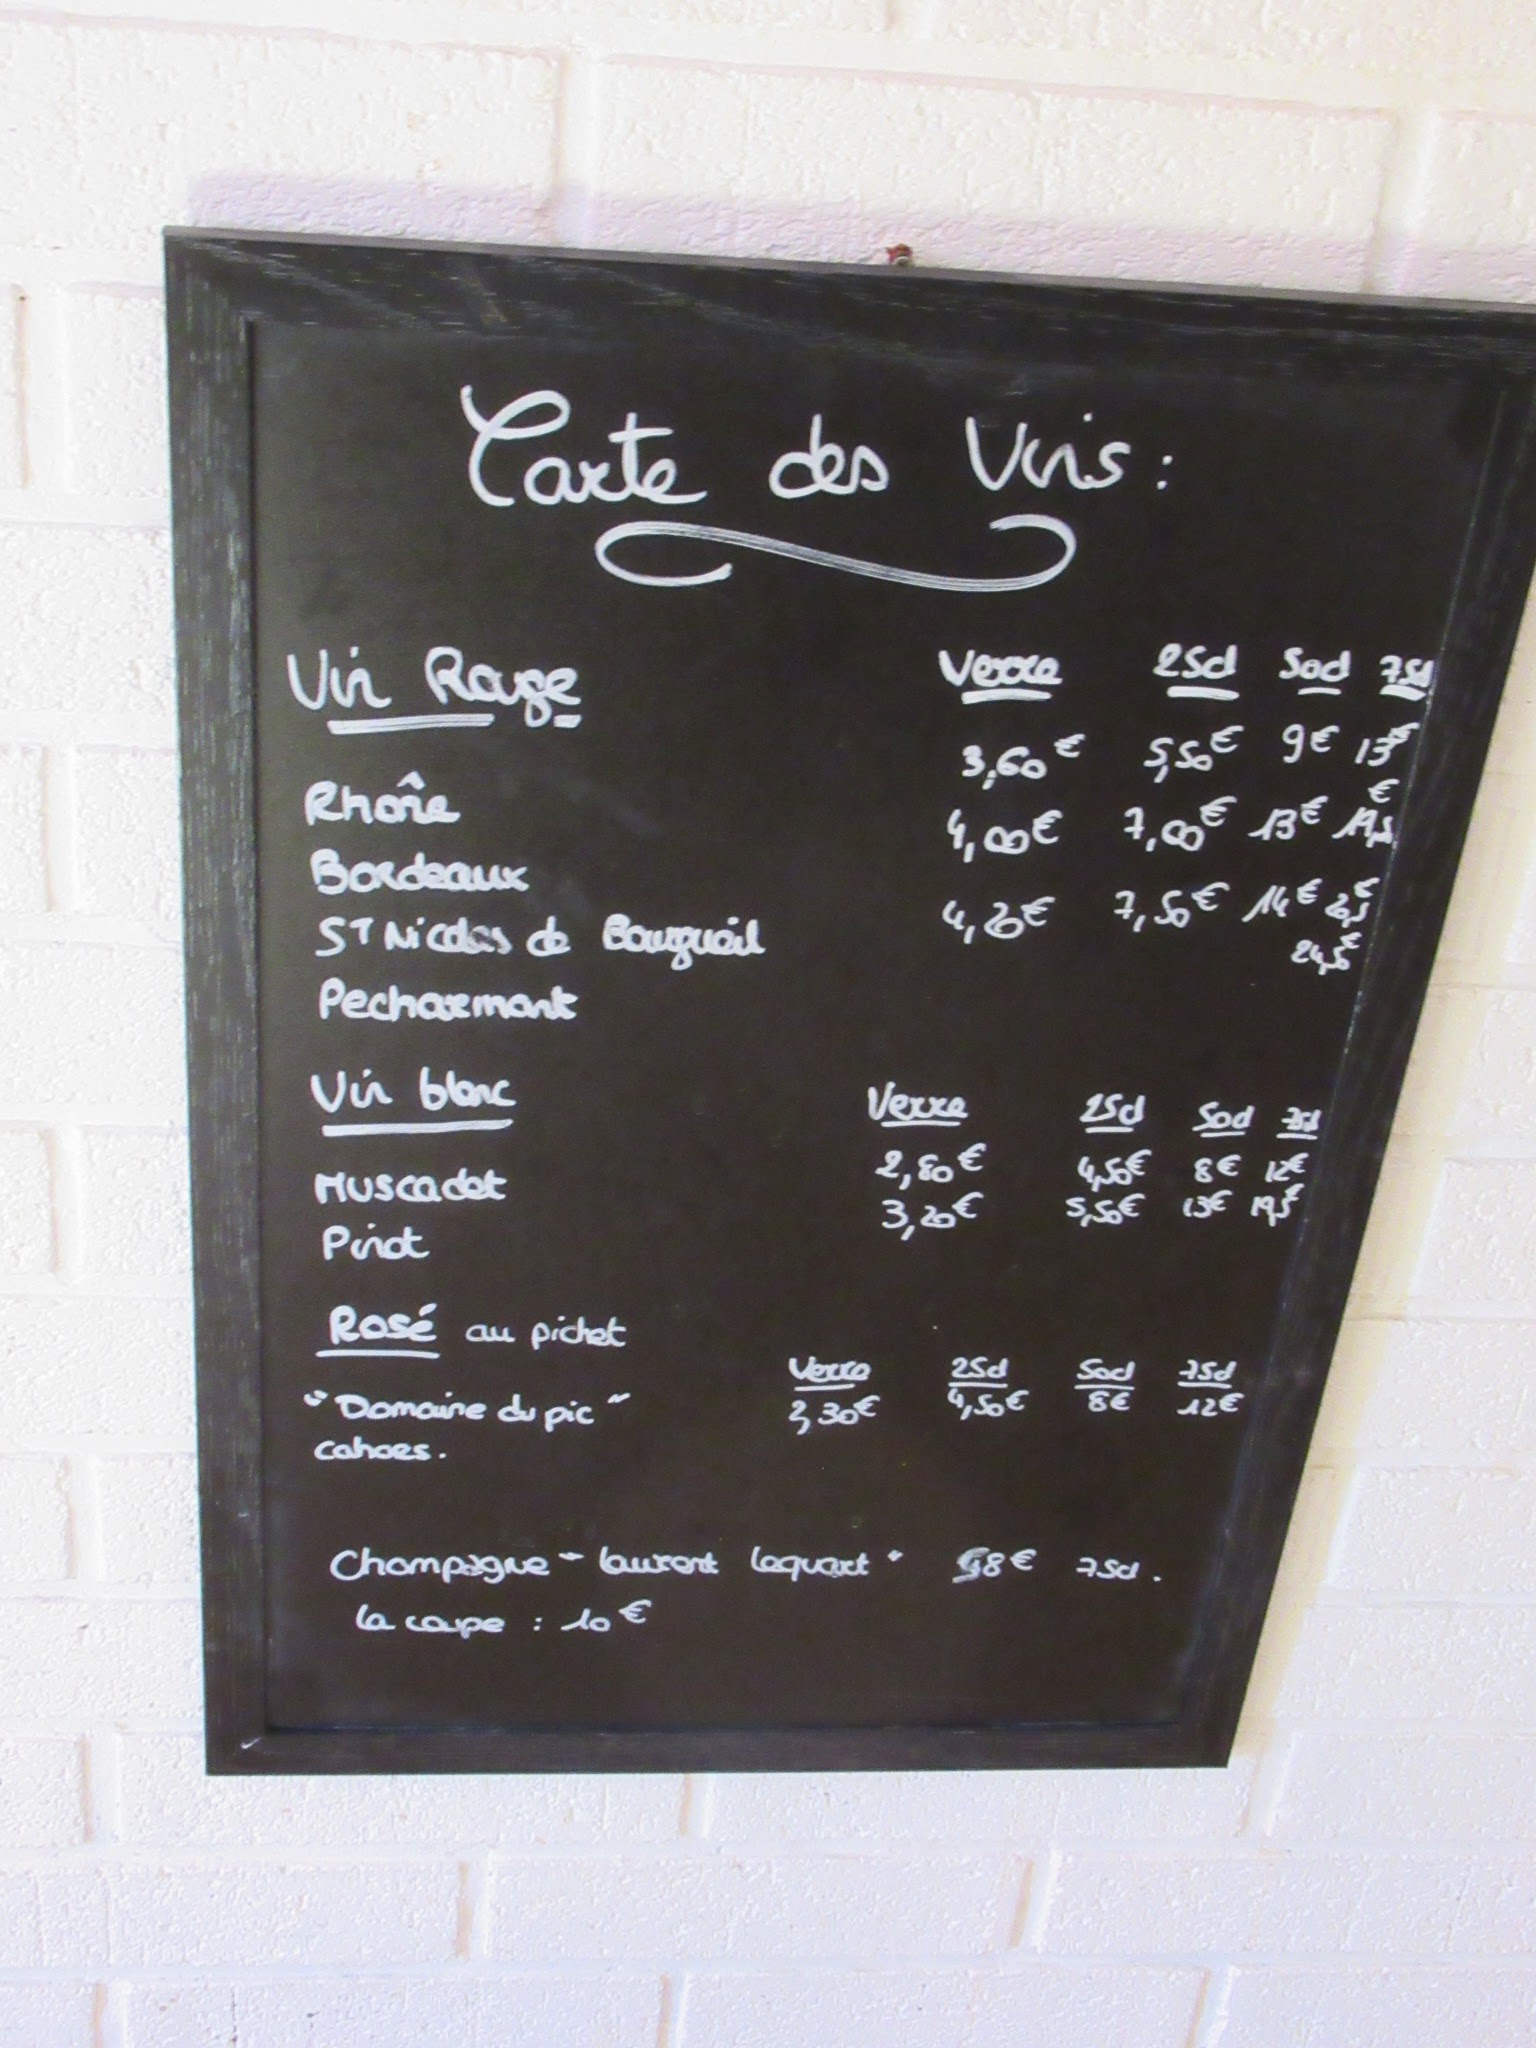 Carte des Vins :
Vin Rouge Verre 25cl 50cl 75cl
Rhône 3,60€ 5,50€ 9€ 13€
Bordeaux 4,00€ 7,00€ 13€ 19,5€
ST Nicolas de Bourgueil 4,20€ 7,50€ 14€ 20,5€
Pecharmant 24,5€
Vin blanc Verre 25cl 50cl 75cl
Muscadet 2,80€ 4,50€ 8€ 12€
Pinot 3,20€ 5,50€ 13€ 19,5€
Rosé au pichet
Verre 25cl 50cl 75cl
"Domaine du pic" 2,30€ 4,50€ 8€ 12€
cahors.
Champagne "laurent lequart" 75cl.
la coupe : 10€